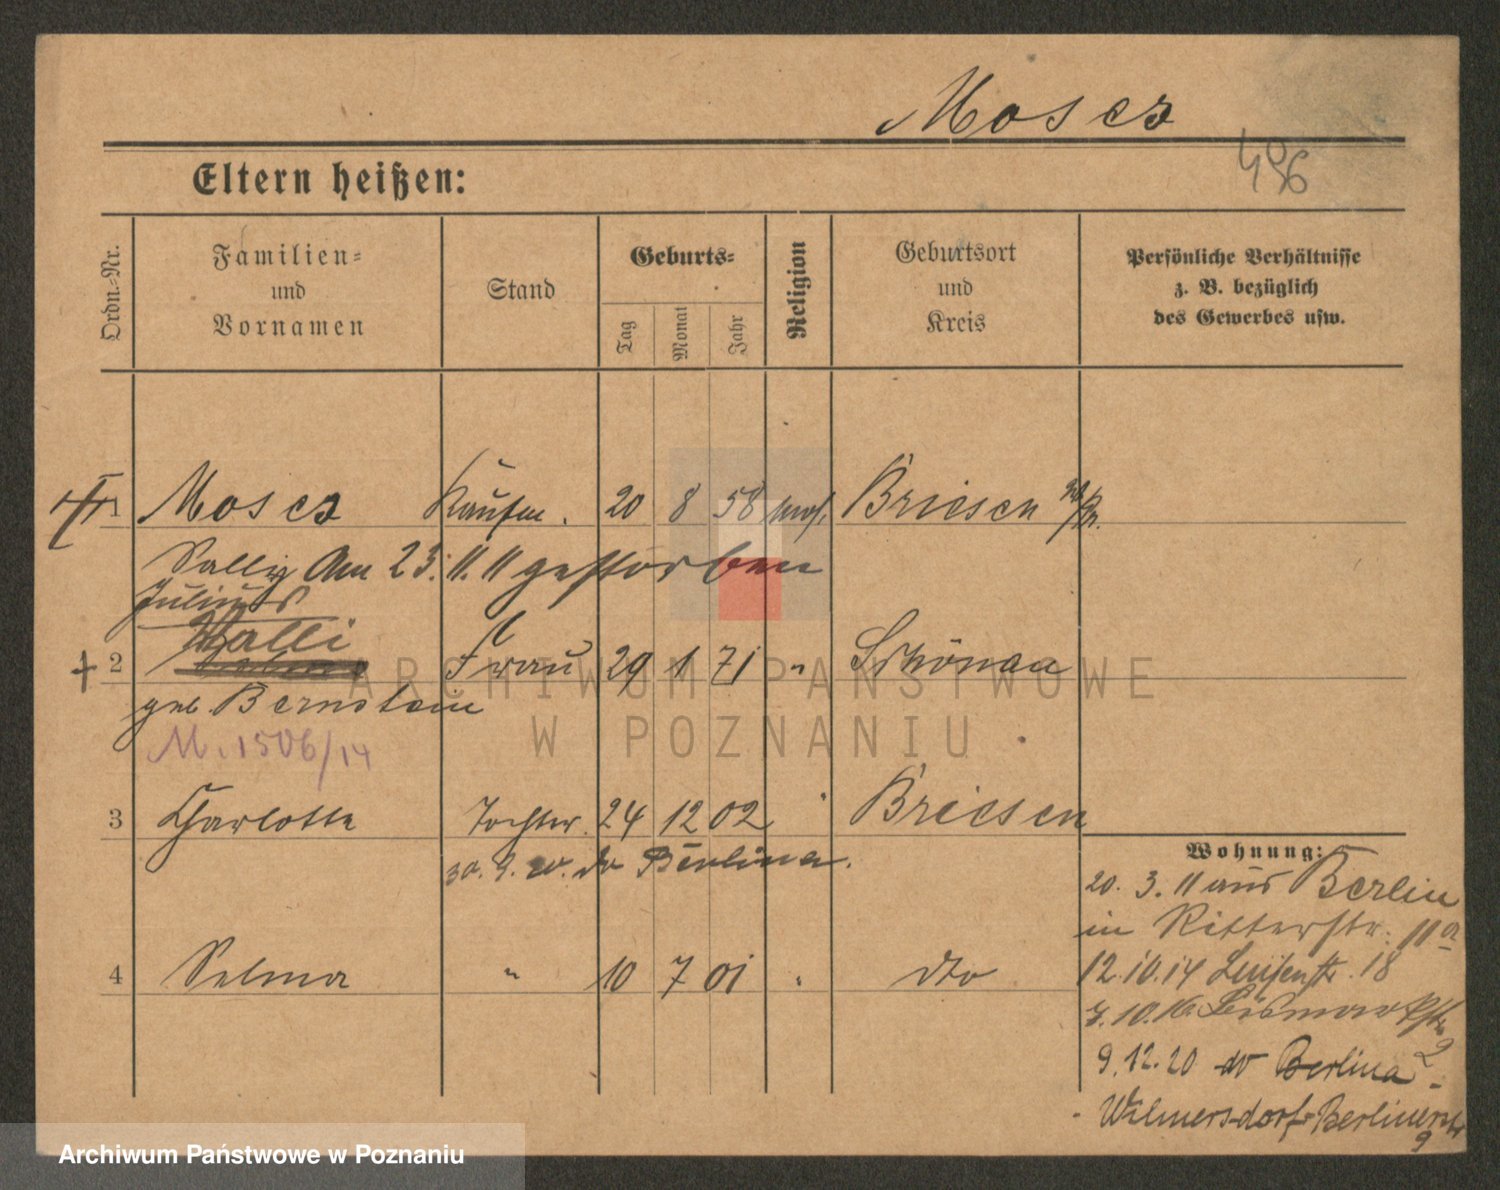 Moses
496
Eltern heißen:
Ordn.-Nr.
Familien-
und
Vornamen
Stand
Geburts-
Tag
Monat
Jahr
Religion
Geburtsort
und
Kreis
Persönliche Verhältnisse
z. B. bezüglich
des Gewerbes usw.
1 Moses Kaufm. 20 8 58 mos. Briesen
Sally Am 23. 11. 11 gestorben
Julius
Walli
2 Frau 29 1 71 " Schönau
geb. Bernstein
M. 1506/14
3 Charlotte Tochter 24 12 02 " Briesen
30. 9. 20. do Berlin a.
4 Selma " 10 7 01 " dto
Wohnung:
20. 3. 11 aus Berlin
in Ritterstr. 11a
12. 10. 14 Luisenstr. 18
7. 10. 16 Bismarckstr.
2
9. 12. 20 do Berlin a
Wilmersdorf-Berlinerstr
9
ARCHIWUM PAŃSTWOWE
W POZNANIU
Archiwum Państwowe w Poznaniu